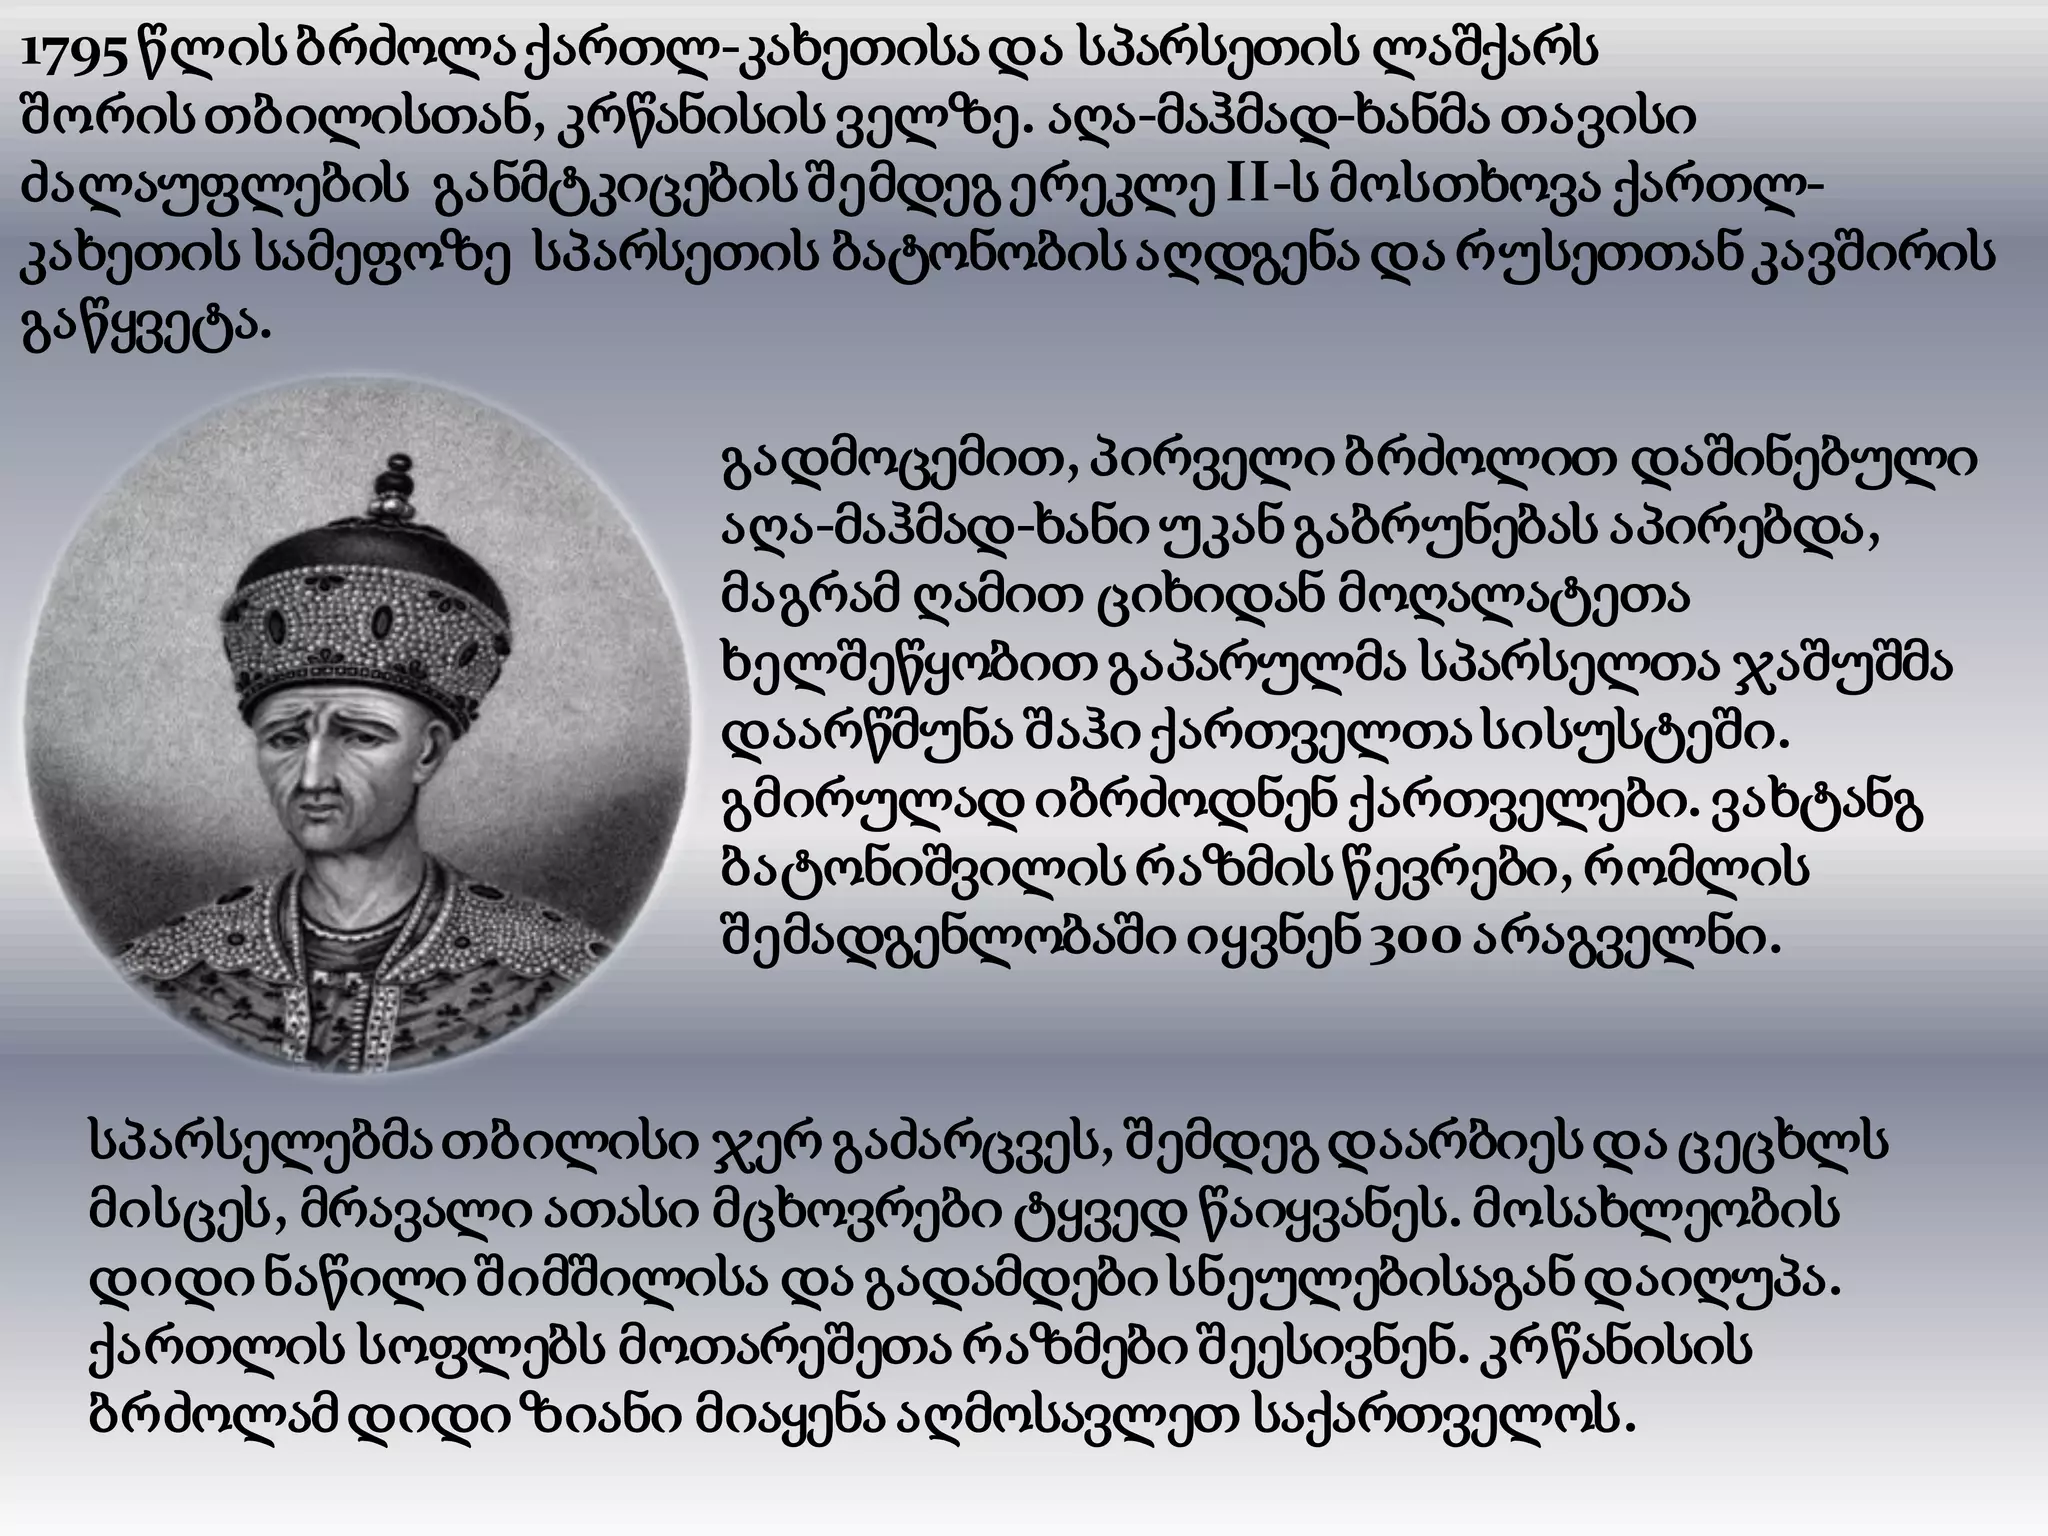 1795 წლის ბრძოლა ქართლ-კახეთისა და სპარსეთის ლაშქარს
შორის თბილისთან, კრწანისის ველზე. აღა-მაჰმად-ხანმა თავისი
ძალაუფლების განმტკიცების შემდეგ ერეკლე II-ს მოსთხოვა ქართლ-
კახეთის სამეფოზე სპარსეთის ბატონობის აღდგენა და რუსეთთან კავშირის
გაწყვეტა.
გადმოცემით, პირველი ბრძოლით დაშინებული
აღა-მაჰმად-ხანი უკან გაბრუნებას აპირებდა,
მაგრამ ღამით ციხიდან მოღალატეთა
ხელშეწყობით გაპარულმა სპარსელთა ჯაშუშმა
დაარწმუნა შაჰი ქართველთა სისუსტეში.
გმირულად იბრძოდნენ ქართველები. ვახტანგ
ბატონიშვილის რაზმის წევრები, რომლის
შემადგენლობაში იყვნენ 300 არაგველნი.
სპარსელებმა თბილისი ჯერ გაძარცვეს, შემდეგ დაარბიეს და ცეცხლს
მისცეს, მრავალი ათასი მცხოვრები ტყვედ წაიყვანეს. მოსახლეობის
დიდი ნაწილი შიმშილისა და გადამდები სნეულებისაგან დაიღუპა.
ქართლის სოფლებს მოთარეშეთა რაზმები შეესივნენ. კრწანისის
ბრძოლამ დიდი ზიანი მიაყენა აღმოსავლეთ საქართველოს.